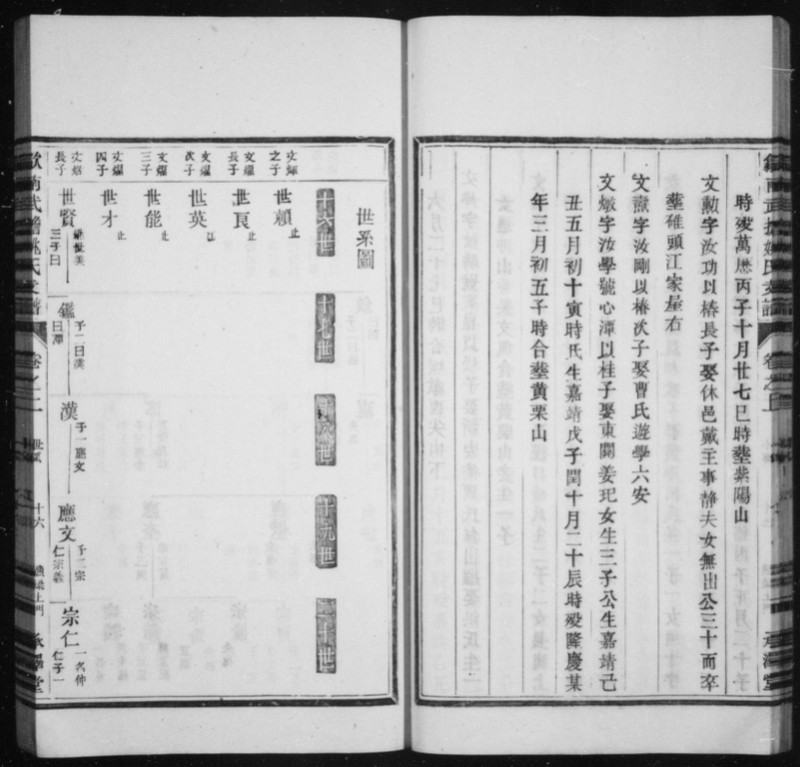 時歿萬厯丙子十月廿七巳時塟紫陽山
文勲字汝功以椿長子娶休邑戴主事靜夫女無出公三十而卒
塟碓頭江家屋右
文𤋮字汝剛以椿次子娶曹氏遊學六安
文燉字汝學號心潭以桂子娶東關姜玘女生三子公生嘉靖己
丑五月初十寅時氏生嘉靖戊子閏十月二十辰時歿隆慶某
年三月初五子時合塟黄栗山
世系圖
十六世 十七世 十八世 十九世 二十世
文煇之子 世頼 止
文燿長子 世良 止
文燿次子 世英 止
文燿三子 世能 止
文燿四子 世才 止
文 長子 世賢 三子曰 鑑 子二曰漢曰潭 漢 子一應文 應文 子二宗仁宗義 宗仁 一名仲仁子一
歙南武擔姚氏支譜 卷之二 世系 十六 承澤堂